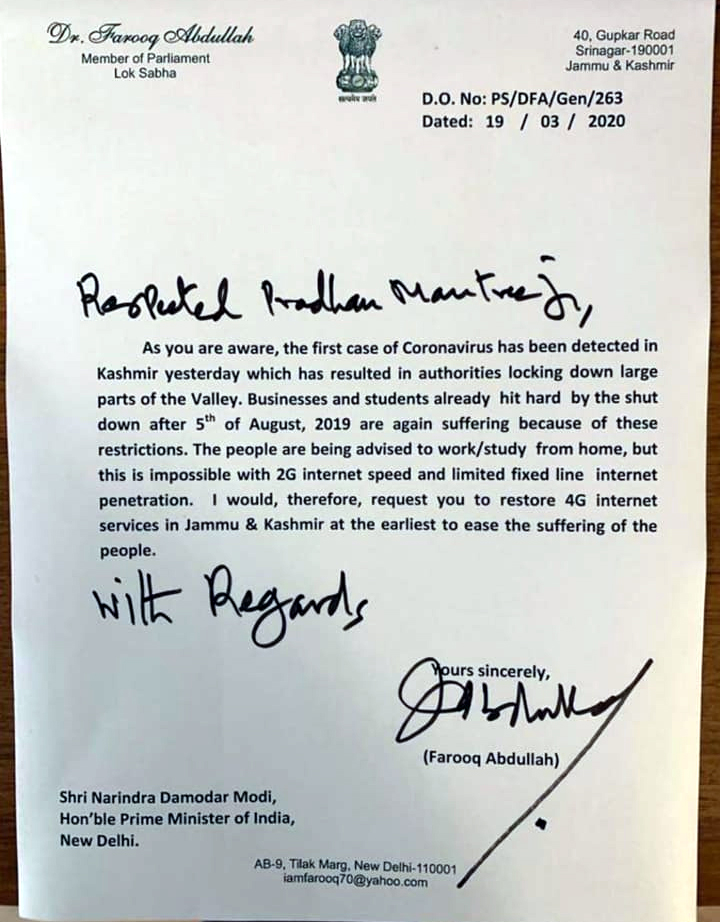 Dr. Farooq Abdullah
Member of Parliament
Lok Sabha
सत्यमेव जयते
40, Gupkar Road
Srinagar-190001
Jammu & Kashmir
D.O. No: PS/DFA/Gen/263
Dated: 19 / 03 / 2020
Respected Pradhan Mantree Ji,
As you are aware, the first case of Coronavirus has been detected in
Kashmir yesterday which has resulted in authorities locking down large
parts of the Valley. Businesses and students already hit hard by the shut
down after 5th of August, 2019 are again suffering because of these
restrictions. The people are being advised to work/study from home, but
this is impossible with 2G internet speed and limited fixed line internet
penetration. I would, therefore, request you to restore 4G internet
services in Jammu & Kashmir at the earliest to ease the suffering of the
people.
With Regards
Yours sincerely,
(Farooq Abdullah)
Shri Narindra Damodar Modi,
Hon'ble Prime Minister of India,
New Delhi.
AB-9, Tilak Marg, New Delhi-110001
iamfarooq70@yahoo.com